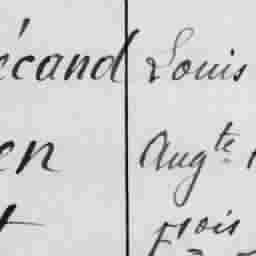 écand Louis
en Aug.te
t F.ois